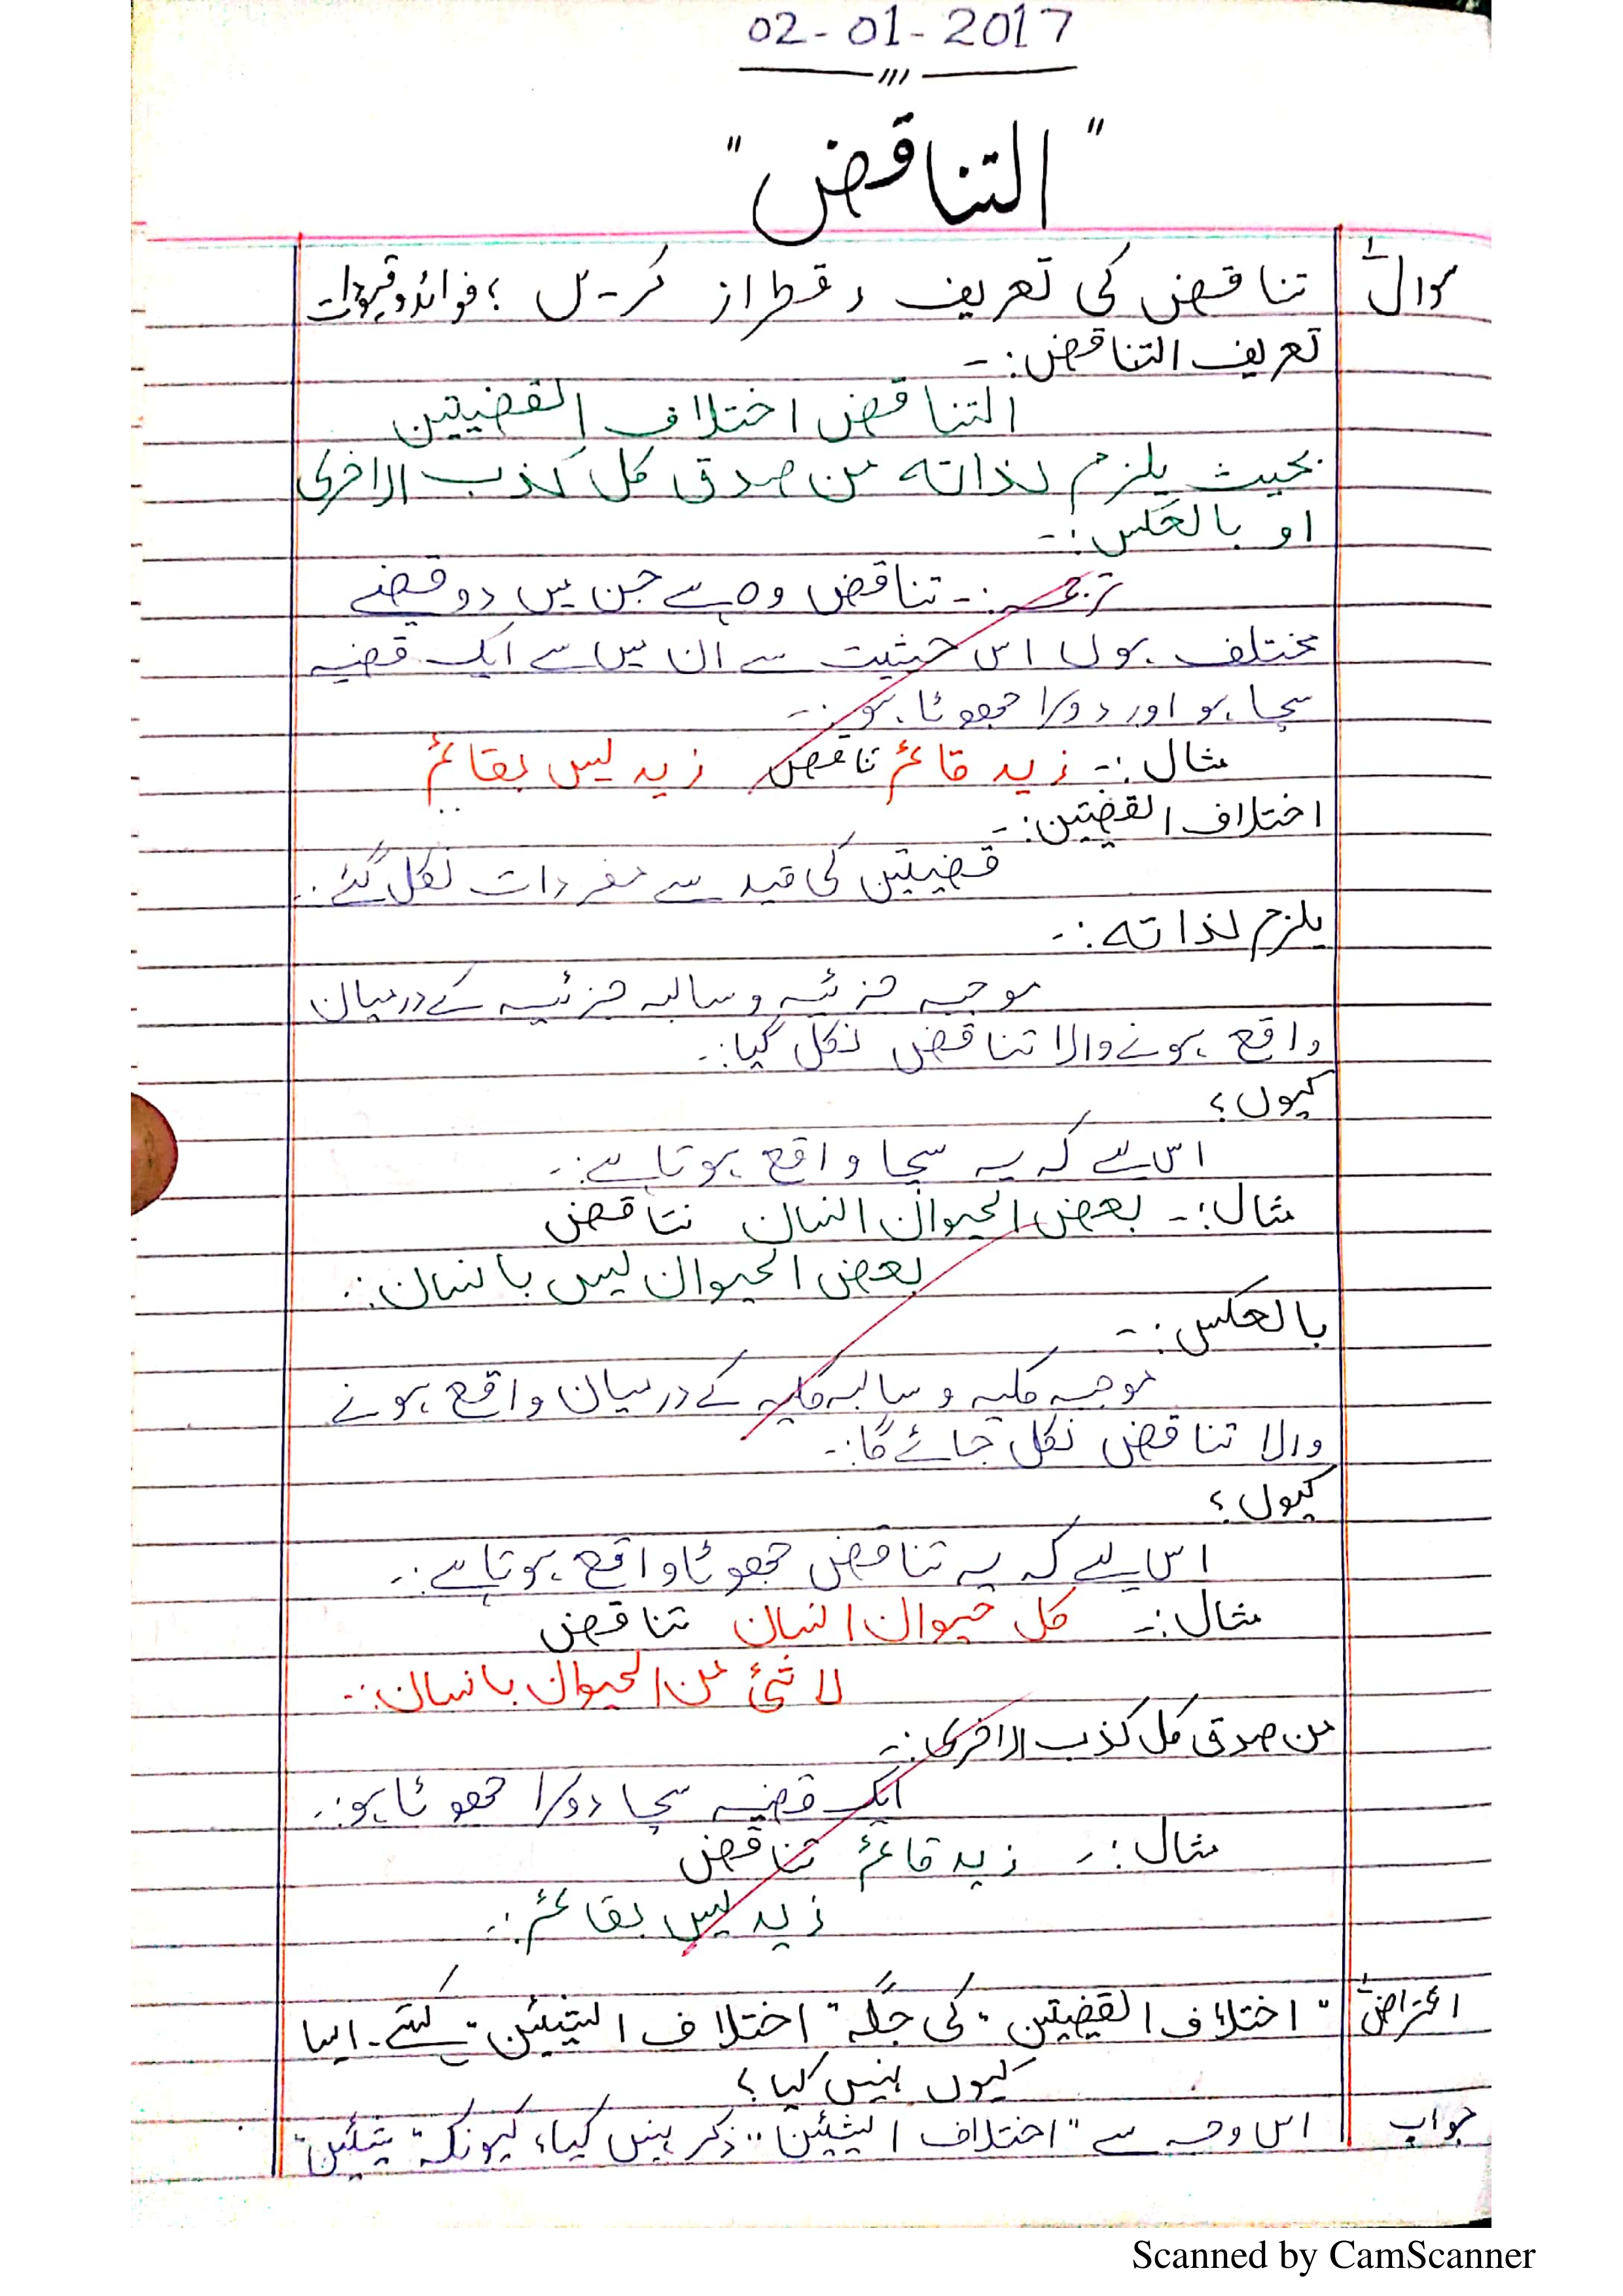 02-01-2017
"التناقض"
سوال ١ تناقض کی تعریف رقمطراز کریں؟ فوائد و قیودات
تعریف التناقض:-
التناقض اختلاف القضیتین
بحیث یلزم لذاته من صدق کل کذب الاخری
او بالعکس:-
ترجمہ:- تناقض وہ ہے جن میں دو قضیے
مختلف ہوں اس حیثیت سے ان میں سے ایک قضیہ
سچا ہو اور دوسرا جھوٹا ہو:-
مثال:- زید قائم تناقض زید لیس بقائم
اختلاف القضیتین:-
قضیتین کی قید سے مفردات نکل گئے:-
یلزم لذاته:-
موجبہ جزئیہ و سالبہ جزئیہ کے درمیان
واقع ہونے والا تناقض نکل گیا:-
کیوں؟
اس لیے کہ یہ سچا واقع ہوتا ہے:-
مثال:- بعض الحیوان انسان تناقض
بعض الحیوان لیس بانسان:-
بالعکس:-
موجبہ کلیہ و سالبہ کلیہ کے درمیان واقع ہونے
والا تناقض نکل جائے گا:-
کیوں؟
اس لیے کہ یہ تناقض جھوٹا واقع ہوتا ہے:-
مثال:- کل حیوان انسان تناقض
لا شئ من الحیوان بانسان:-
من صدق کل کذب الاخری:-
ایک قضیہ سچا دوسرا جھوٹا ہو:-
مثال:- زید قائم تناقض
زید لیس بقائم:-
اعتراض ١ "اختلاف القضیتین" کی جگہ "اختلاف الشیئین" کہتے۔ ایسا
کیوں نہیں کیا؟
جواب اس وجہ سے "اختلاف الشیئین" ذکر نہیں کیا، کیونکہ "شیئین"
Scanned by CamScanner